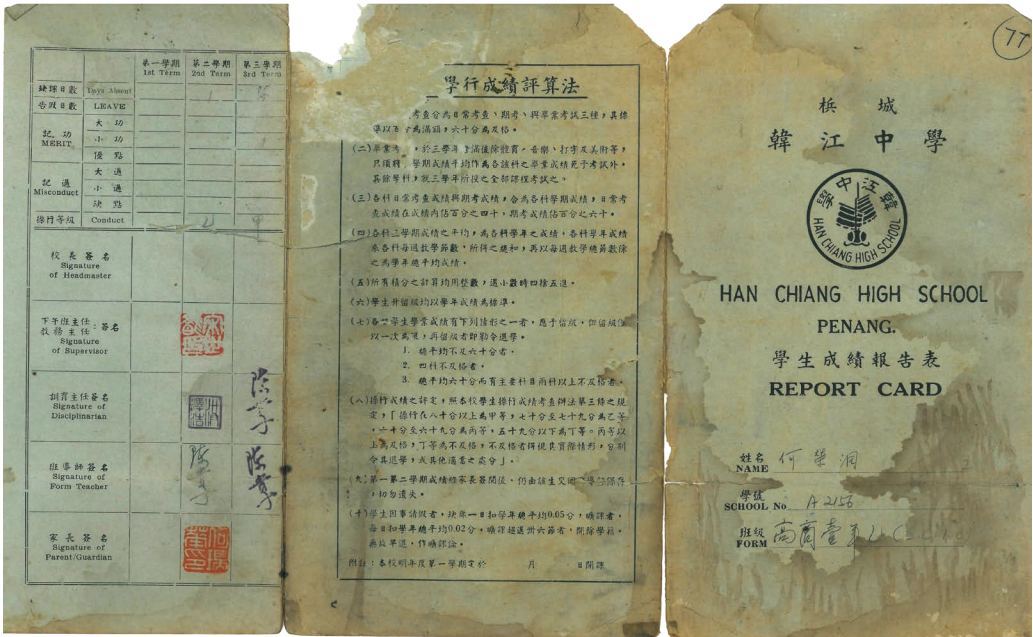 第一學期 第二學期 第三學期
1st Term 2nd Term 3rd Term
缺課日數 Days Absent 1
告假日數 LEAVE
記功 MERIT
大功
小功
優點
記過 Misconduct
大過
小過
缺點
操行等級 Conduct 乙 甲
校長簽名
Signature
of Headmaster
下午班主任
教務主任:簽名
Signature
of Supervisor
訓育主任簽名
Signature of
Disciplinarian
班導師簽名
Signature of
Form Teacher
家長簽名
Signature of
Parent/Guardian
學行成績評算法
考查分為日常考查、期考、與畢業考試三種,其標
準以百分為滿額,六十分為及格。
(二)畢業考,於三學年滿後除體育、音樂、打字及美術等,
只須將學期成績平均作為各該科之畢業成績免予考試外,
其餘學科,就三學年所授之全部課程考試之。
(三)各科日常考查成績與期考成績,合為各科學期成績,日常考
查成績在成績內佔百分之四十,期考成績佔百分之六十。
(四)各科三學期成績之平均,為各科學年之成績,各科學年成績
乘各科每週教學節數,所得之總和,再以每週教學總節數除
之為學年總平均成績。
(五)所有積分之計算均用整數,遇小數時四捨五進。
(六)學生升留級均以學年成績為標準。
(七)各學生學業成績有下列情形之一者,應予留級,但留級
以一次為限,再留級者即勒令退學。
1. 總平均不及六十分者。
2. 四科不及格者。
3. 總平均六十分而有主要科目兩科以上不及格者。
(八)操行成績之評定,照本校學生操行成績考查辦法第三條之規
定,「操行在八十分以上為甲等,七十分至七十九分為乙等
,六十分至六十九分為丙等,五十九分以下為丁等。丙等以
上為及格,丁等為不及格,不及格者得視其實際情形,分別
令其退學,或其他適當之處分」。
(九)第一第二學期成績經家長簽閱後,仍由該生交回學校保存
,切勿遺失。
(十)學生因事請假者,缺席一日扣學年總平均0.05分,曠課者,
每日扣學年總平均0.02分,曠課超過卅六節者,開除學籍。
無故早退,作曠課論。
附註:本校明年度第一學期定於 月 日開課
77
檳城
韓江中學
韓江中學
HAN CHIANG HIGH SCHOOL
HAN CHIANG HIGH SCHOOL
PENANG.
學生成績報告表
REPORT CARD
姓名
NAME 何
學號
SCHOOL No A 2156
班級
FORM 高商壹